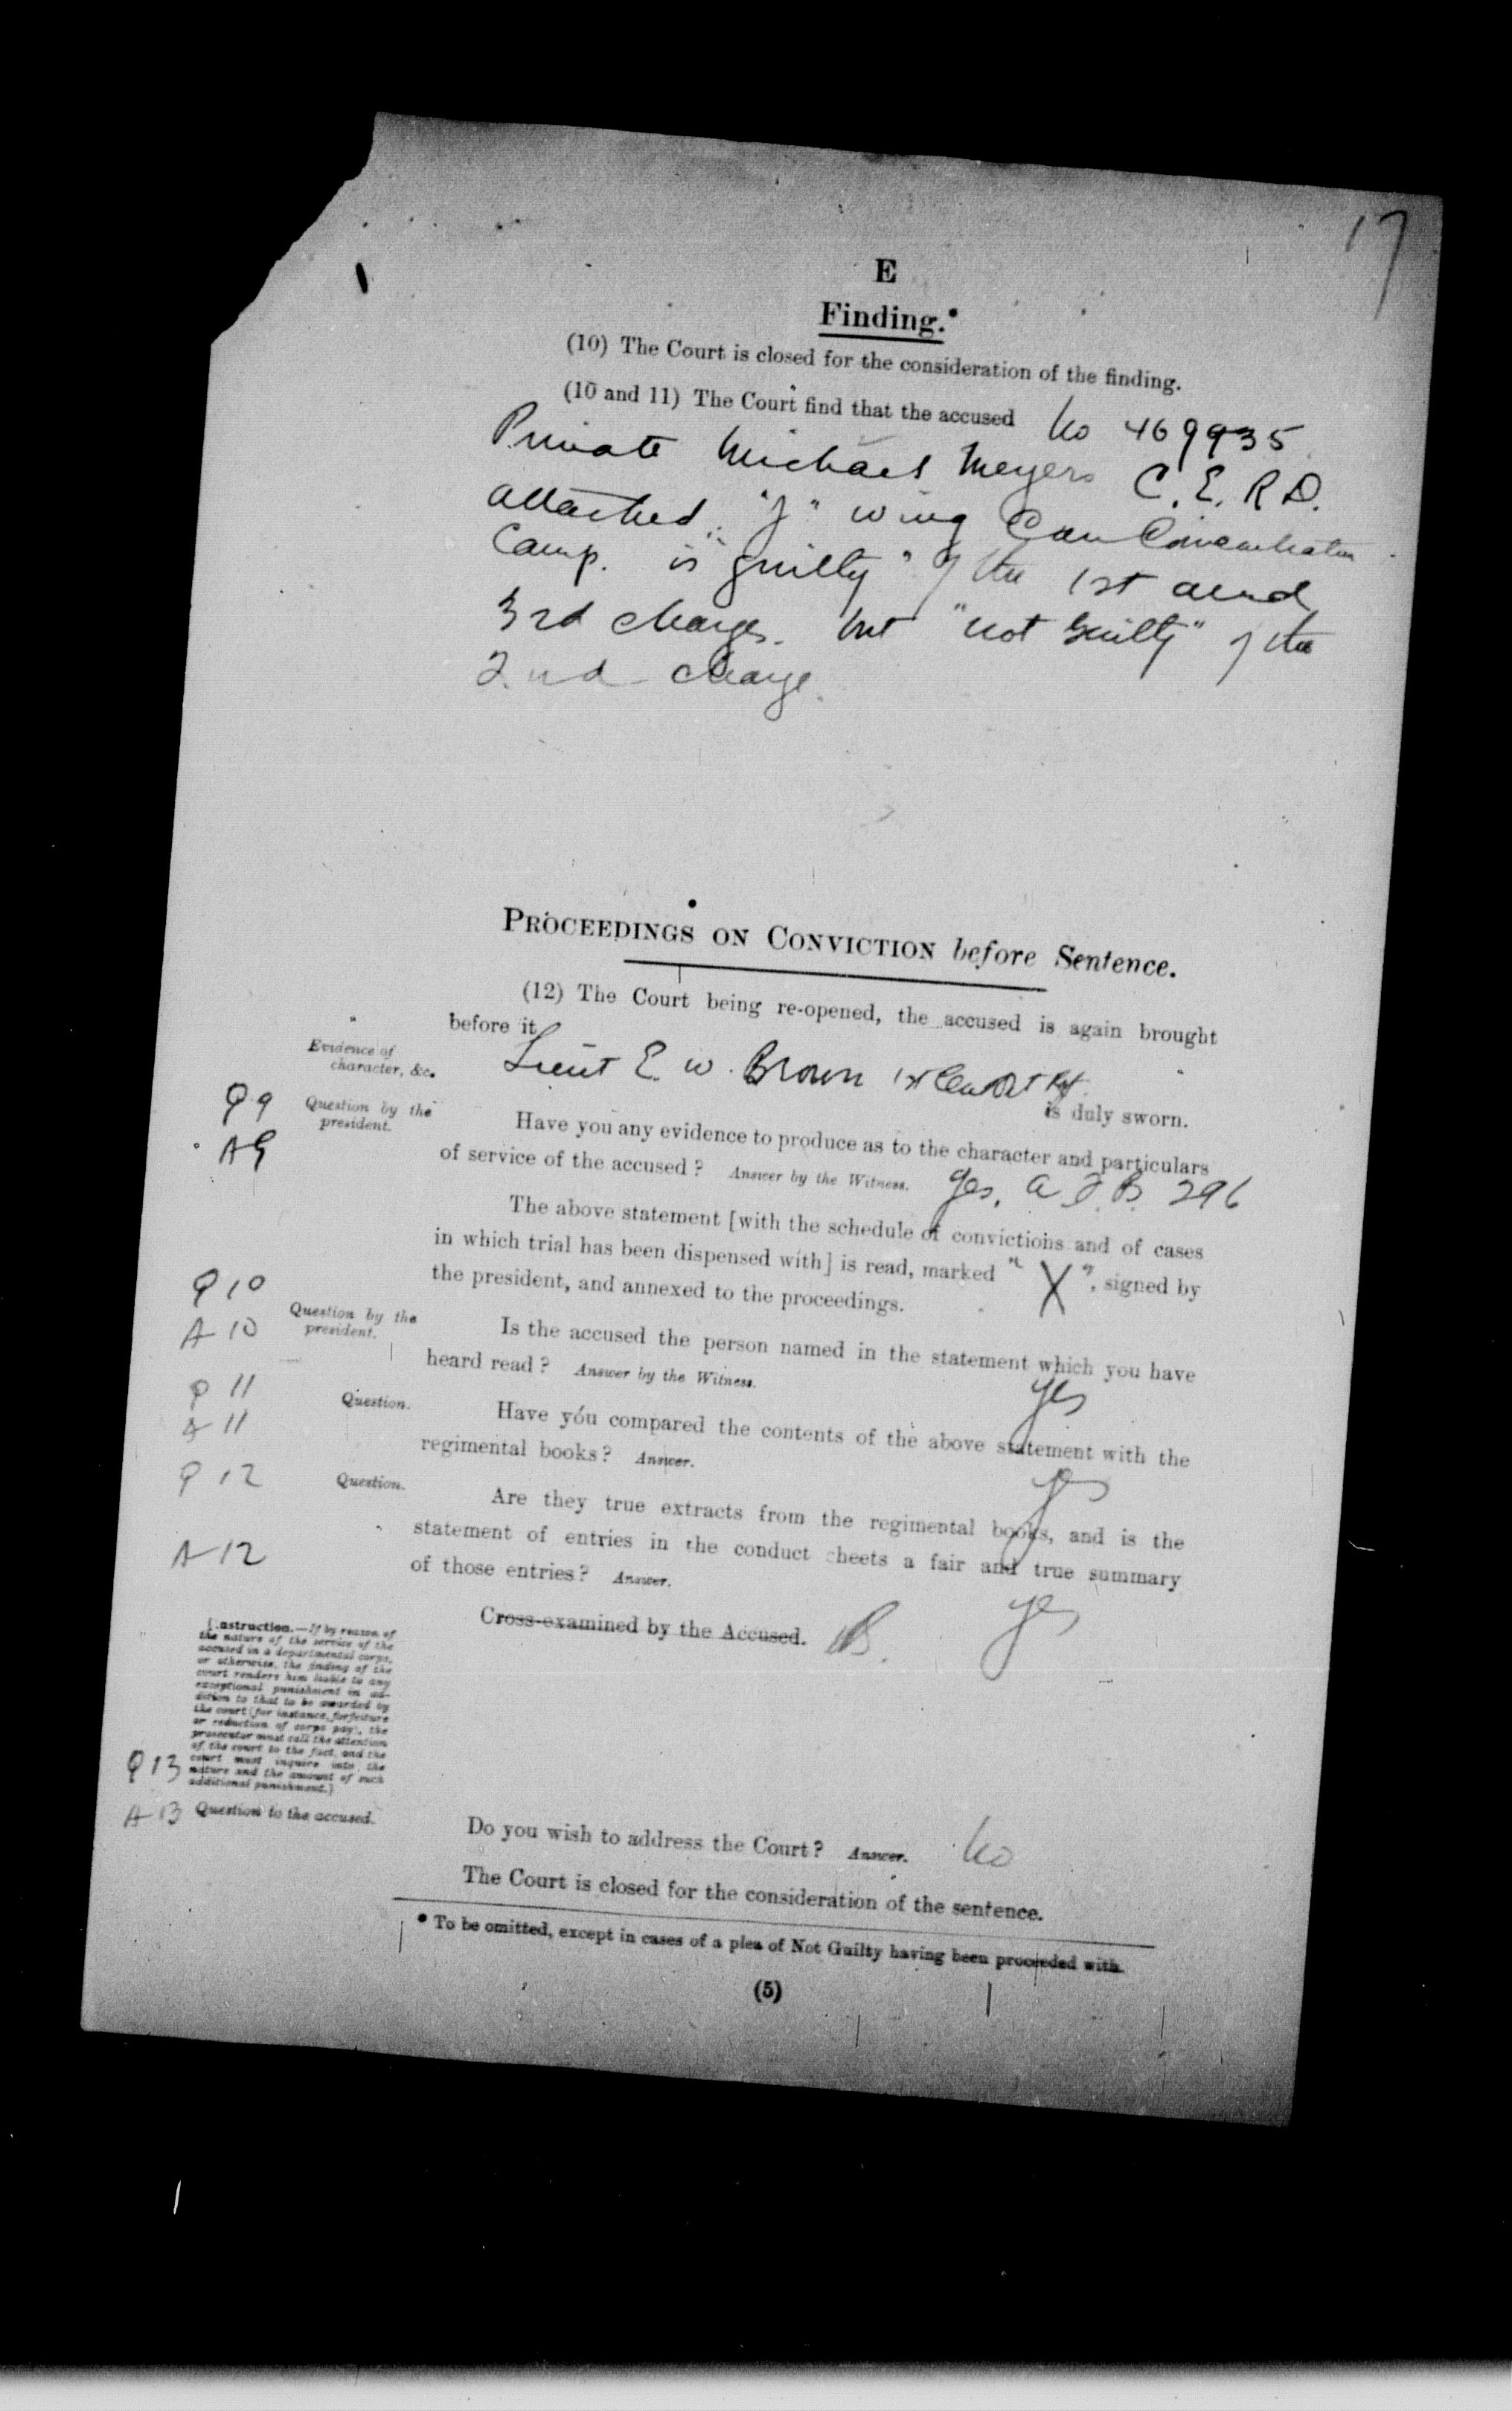 17
E
Finding.*
(10) The Court is closed for the consideration of the finding.
(10 and 11) The Court find that the accused No 469935
Private Michael Meyers C. E. R D.
attached "J" wing Can Concentration
Camp. is "guilty" of the 1st and
3rd charges. but "not guilty" of the
2nd charge.
PROCEEDINGS ON CONVICTION before Sentence.
(12) The Court being re-opened, the accused is again brought
before it
Evidence of
character, &c.
Lieut E. W. Brown 1st Cen Ont Rgt.
is duly sworn.
Q 9
A 9
Question by the
president.
Have you any evidence to produce as to the character and particulars
of service of the accused? Answer by the Witness. Yes, A. F. B. 296
The above statement [with the schedule of convictions and of cases
in which trial has been dispensed with] is read, marked " X ", signed by
the president, and annexed to the proceedings.
Q 10
A 10
Question by the
president.
Is the accused the person named in the statement which you have
heard read? Answer by the Witness. yes
Q 11
A 11
Question.
Have you compared the contents of the above statement with the
regimental books? Answer. yes
Q 12
Question.
Are they true extracts from the regimental books, and is the
statement of entries in the conduct sheets a fair and true summary
A 12
of those entries? Answer. yes
Cross-examined by the Accused.
[Instruction.—If by reason of
the nature of the service of the
accused in a departmental corps,
or otherwise, the finding of the
court renders him liable to any
exceptional punishment in ad-
dition to that to be awarded by
the court (for instance, forfeiture
or reduction of corps pay), the
prosecutor must call the attention
of the court to the fact, and the
court must inquire into the
nature and the amount of such
additional punishment.]
Q 13
A 13
Question to the accused.
Do you wish to address the Court? Answer. No
The Court is closed for the consideration of the sentence.
* To be omitted, except in cases of a plea of Not Guilty having been proceeded with.
(5)